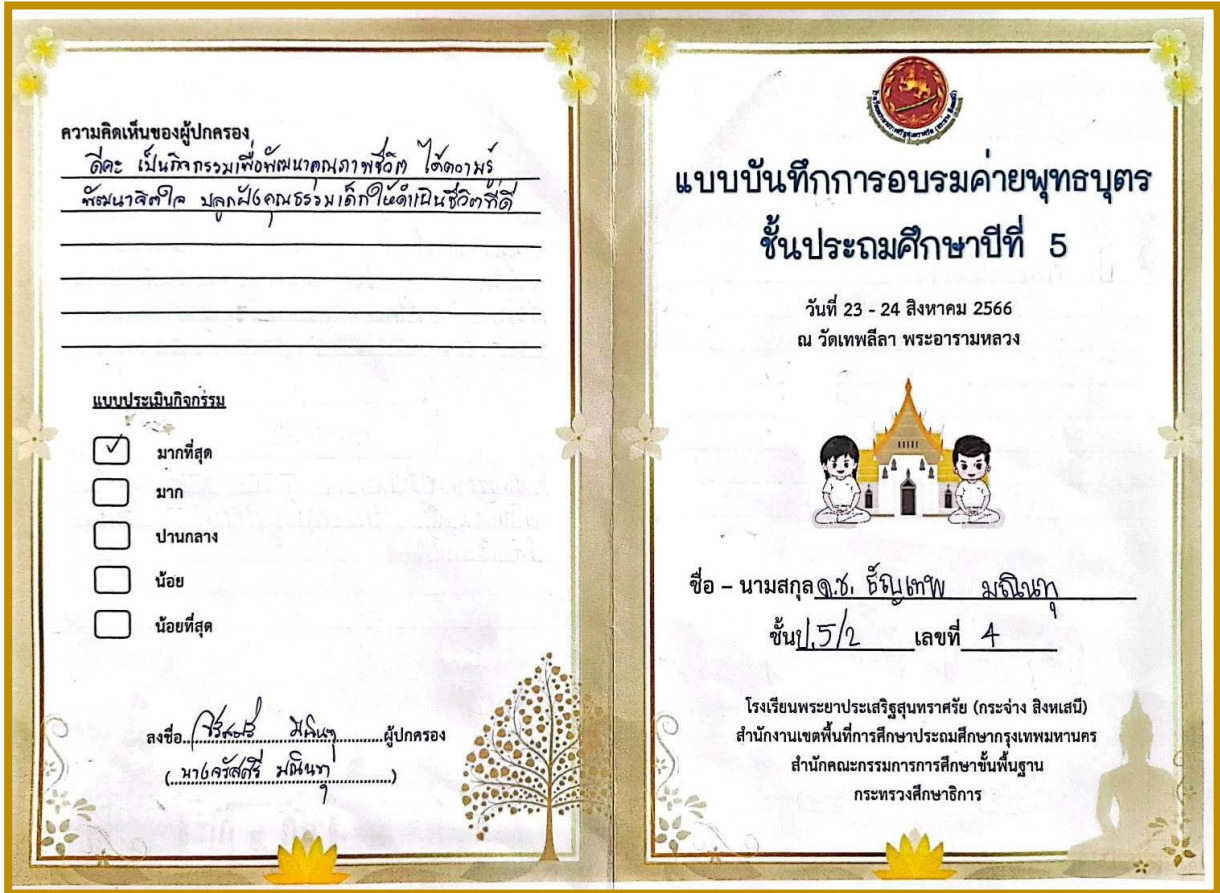 ความคิดเห็นของผู้ปกครอง
ดีคะ เป็นกิจกรรมเพื่อพัฒนาคุณภาพชีวิต ได้ความรู้
พัฒนาจิตใจ ปลูกฝังคุณธรรมเด็กให้ดำเนินชีวิตที่ดี
แบบประเมินกิจกรรม
มากที่สุด
มาก
ปานกลาง
น้อย
น้อยที่สุด
ลงชื่อ ผู้ปกครอง
(นางจรัสศรี มณินทุ)
แบบบันทึกการอบรมค่ายพุทธบุตร
ชั้นประถมศึกษาปีที่ 5
วันที่ 23 - 24 สิงหาคม 2566
ณ วัดเทพลีลา พระอารามหลวง
ชื่อ – นามสกุล ด.ช. ธัญเทพ มณินทุ
ชั้น ป.5/2 เลขที่ 4
โรงเรียนพระยาประเสริฐสุนทราศรัย (กระจ่าง สิงหเสนี)
สำนักงานเขตพื้นที่การศึกษาประถมศึกษากรุงเทพมหานคร
สำนักคณะกรรมการการศึกษาขั้นพื้นฐาน
กระทรวงศึกษาธิการ